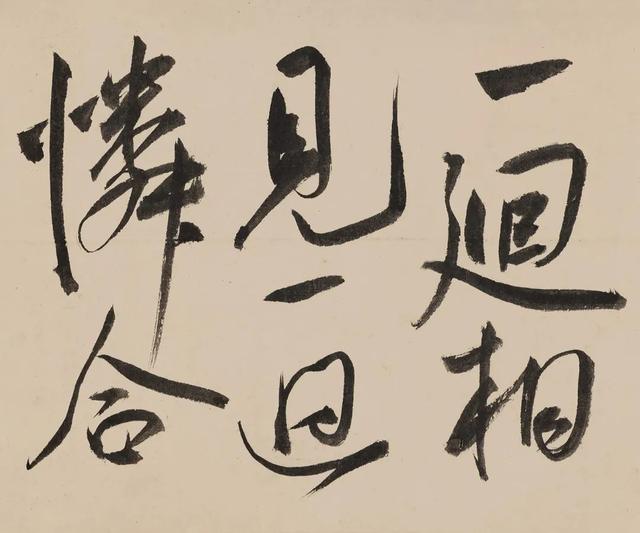 一迴相
見一迴
憐合